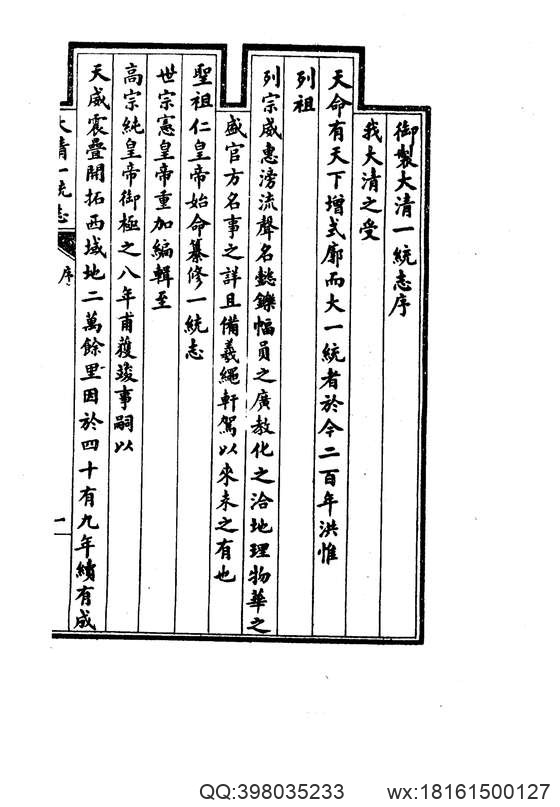 御製大清一統志序
我大清之受
天命有天下增式廓而大一統者於今二百年洪惟
列祖
列宗威惠滂流聲名懿鑠幅員之廣敎化之洽地理物華之
盛官方名事之詳且備羲繩軒駕以來未之有也
聖祖仁皇帝始命纂修一統志
世宗憲皇帝重加編輯至
高宗純皇帝御極之八年甫獲竣事嗣以
天威震疊開拓西域地二萬餘里因於四十有九年續有成
大清一統志
序
一
QQ:398035233 wx:18161500127